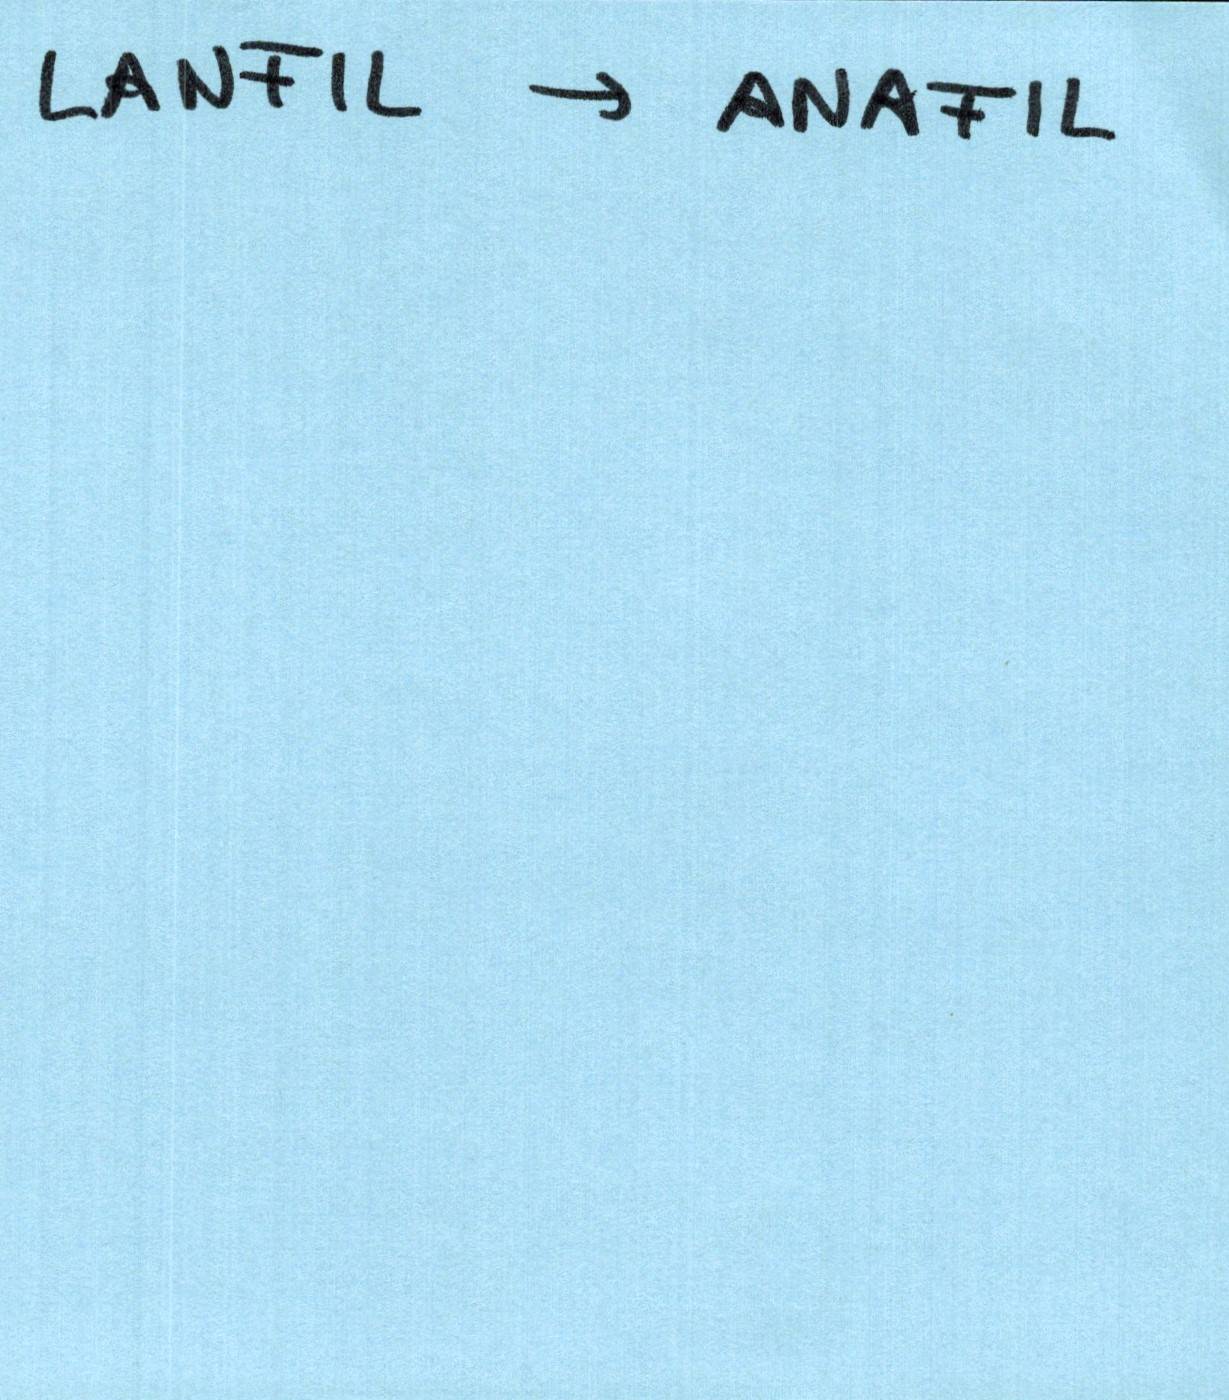 LANFIL → ANAFIL